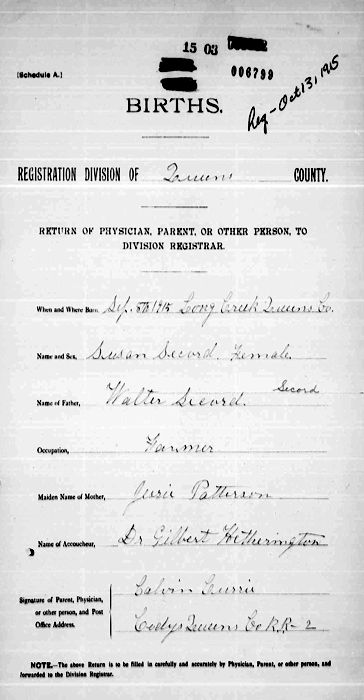 15 03
006799
[Schedule A.]
Reg - Oct 13, 1915
BIRTHS.
REGISTRATION DIVISION OF Queens COUNTY.
RETURN OF PHYSICIAN, PARENT, OR OTHER PERSON, TO
DIVISION REGISTRAR.
When and Where Born, Sep. 5th 1915 Long Creek Queens Co.
Name and Sex, Susan Secord. Female
Secord
Name of Father, Walter Secord.
Occupation, Farmer
Maiden Name of Mother, Patterson
Name of Accoucheur, Dr Gilbert Hetherington
Signature of Parent, Physician,
or other person, and Post
Office Address.
Calvin Currie
Codys Queens Co R.R-2
NOTE.—The above Return is to be filled in carefully and accurately by Physician, Parent, or other person, and
forwarded to the Division Registrar.